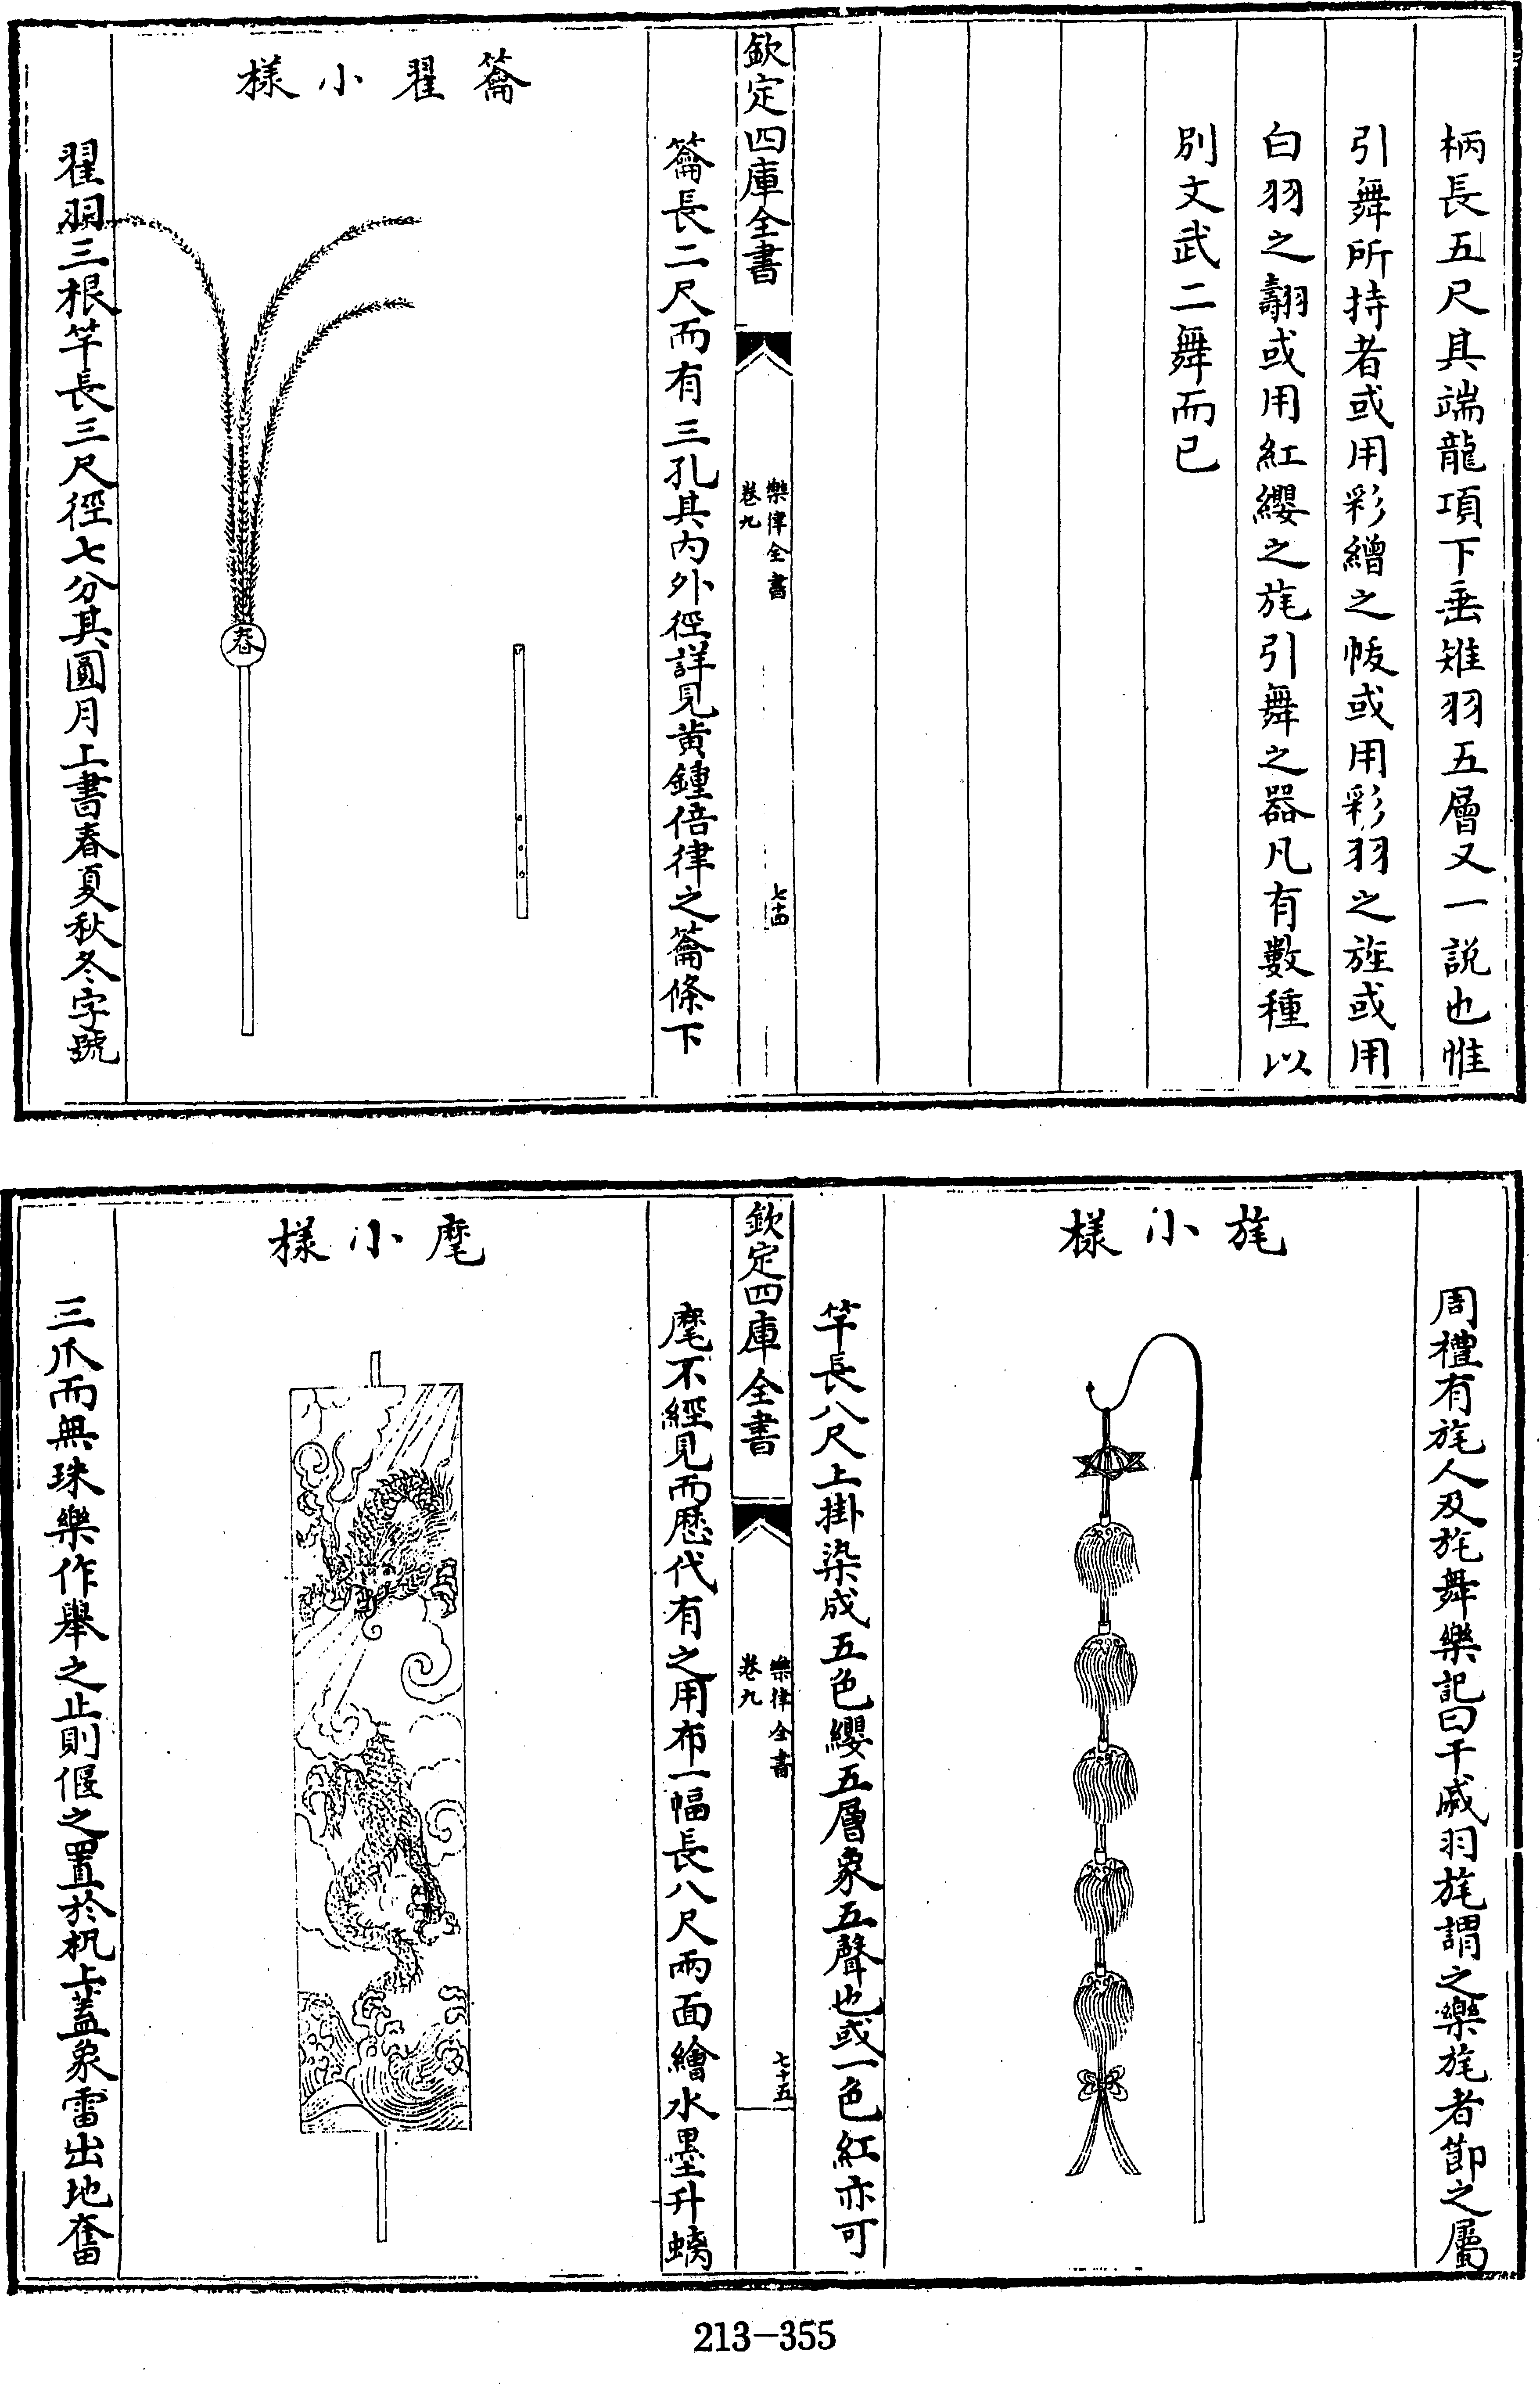 柄長五尺其端龍項下垂雉羽五層又一説也惟
引舞所持者或用彩繒之帗或用彩羽之旌或用
白羽之翿或用紅纓之旄引舞之器凡有數種以
別文武二舞而已
欽定四庫全書
樂律全書
卷九
七十四
籥長二尺而有三孔其内外徑詳見黄鍾倍律之籥條下
籥翟小様
春
翟羽三根竿長三尺徑七分其圓月上書春夏秋冬字號
周禮有旄人及旄舞樂記曰干戚羽旄謂之樂旄者節之屬
旄小様
竿長八尺上掛染成五色纓五層象五聲也或一色紅亦可
欽定四庫全書
樂律全書
卷九
七十五
麾不經見而歴代有之用布一幅長八尺兩面繪水墨升螭
麾小様
三爪而無珠樂作舉之止則偃之置於机上蓋象雷出地奮
213-355